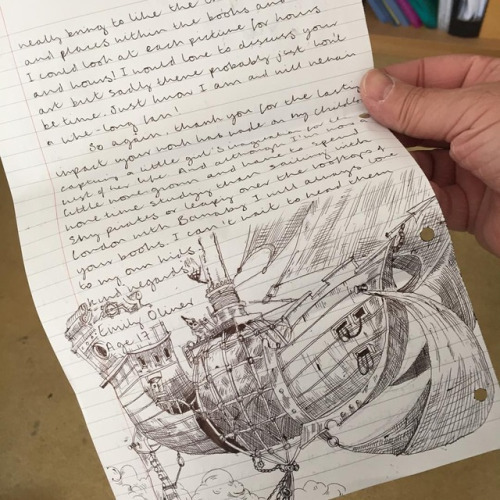 really bring to like the
and places within the books and
I could look at each picture for hours
and hours! I would love to discuss your
art but sadly there probably just won't
be time. Just know I am and will remain
a life-long fan!
So again, thank you for the lasting
impact your work has made on my childhood
capturing a little girl's imagination for the
rest of her life. And although I'm now a
little more grown and have to spend
more time studying than sailing with
Sky pirates or leaping over the rooftops of
London with Barnaby I will always love
your books. I can't wait to read them
to my own kids!
Kind regards
Emily Oliver
Age 17